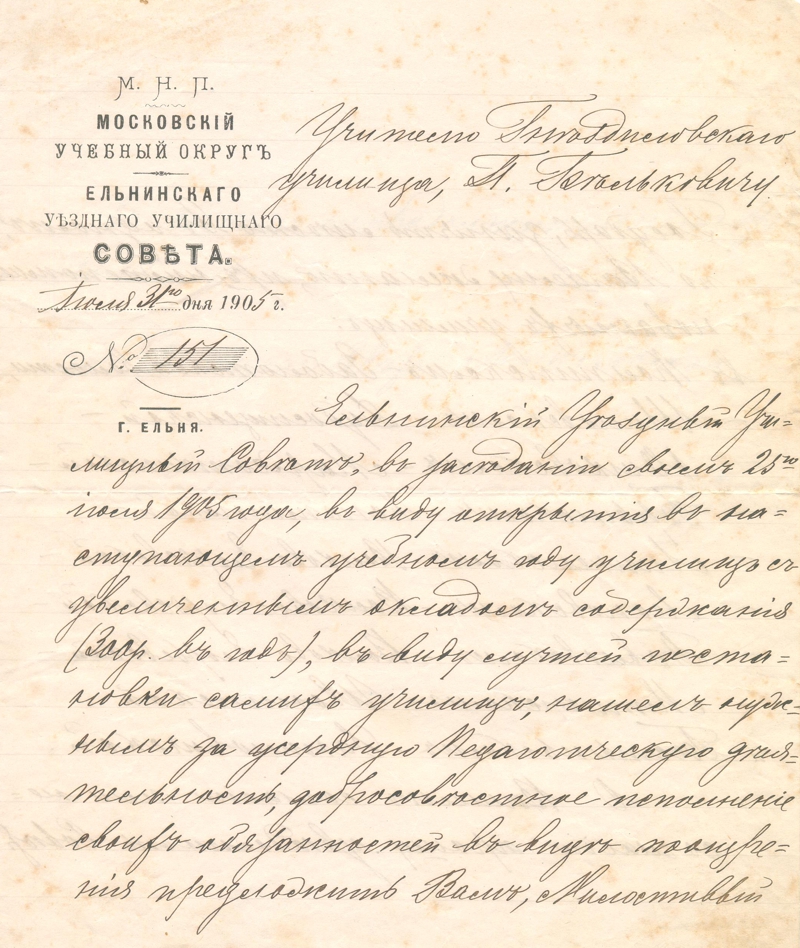 М. Н. П.
МОСКОВСКІЙ
УЧЕБНЫЙ ОКРУГЪ
ЕЛЬНИНСКАГО
УѢЗДНАГО УЧИЛИЩНАГО
СОВѢТА.
Іюля 31го дня 1905 г.
№ 151.
Г. ЕЛЬНЯ.
Учителю Гнѣздиловскаго
училища, П. Бѣльковичу.
Ельнинскій Уѣздный Учи-
лищный Совѣтъ, въ засѣданіи своемъ 25го
іюля 1905 года, въ виду открытія въ на-
ступающемъ учебномъ году училищъ съ
увеличеннымъ окладомъ содержанія
(300р. въ годъ), въ виду лучшей поста-
новки самихъ училищъ, нашелъ нуж-
нымъ за усердную Педагогическую дѣя-
тельность, добросовѣстное исполненіе
своихъ обязанностей въ видѣ поощре-
нія предложить Вамъ, Милостивый